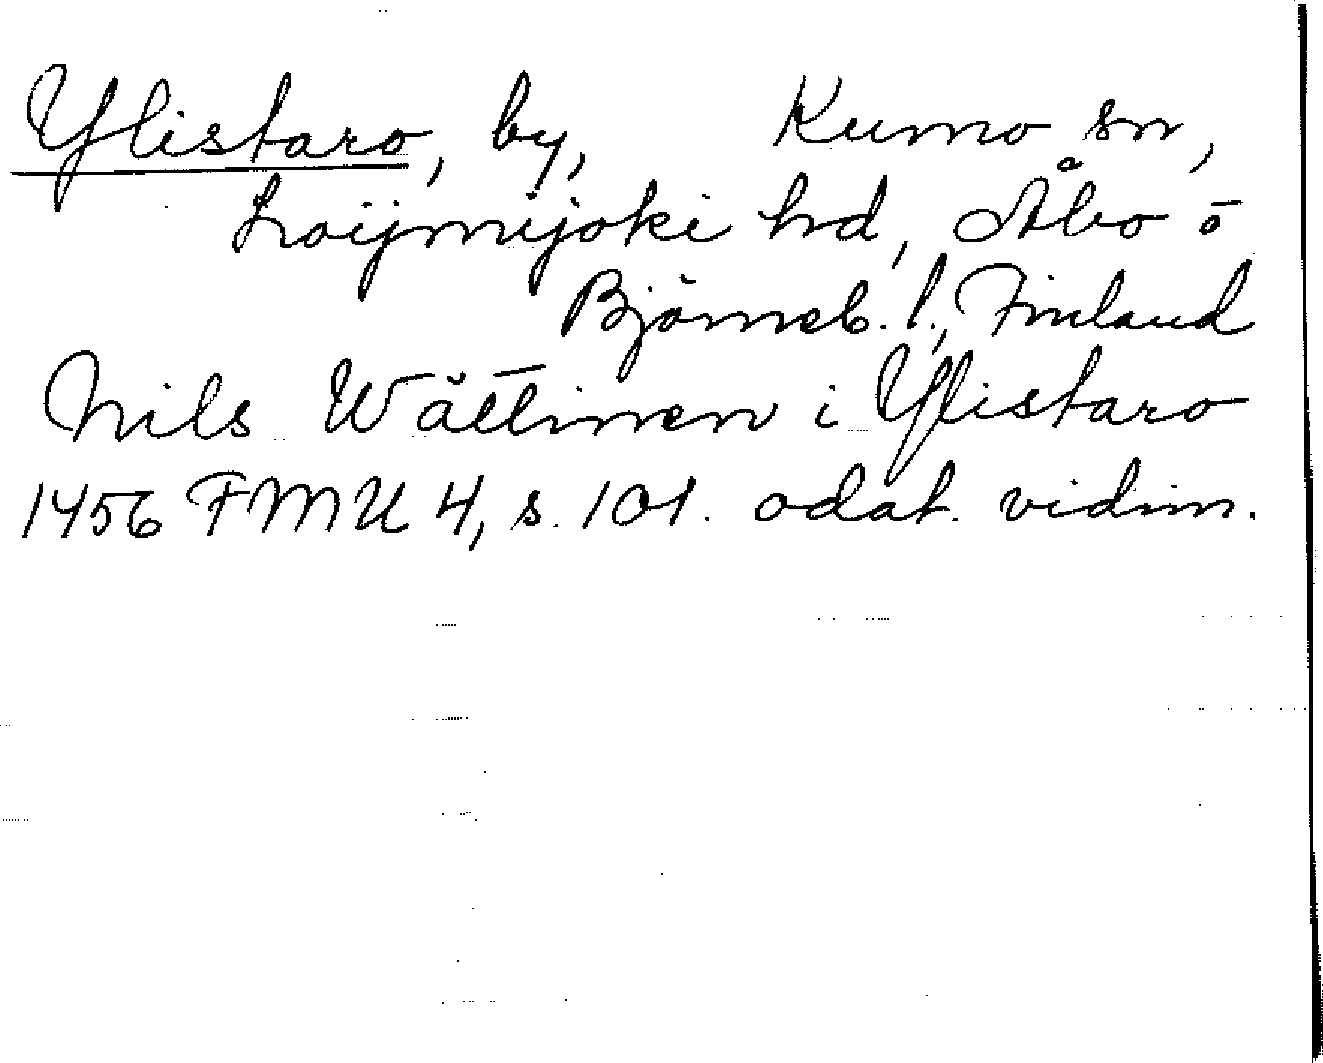 Ylistaro, by, Kumo sn,
Loijmijoki hd, Åbo o
Björneb. l., Finland
Nils Wättinen i Ylistaro
1456 FMU 4, s. 101. odat. vidim.